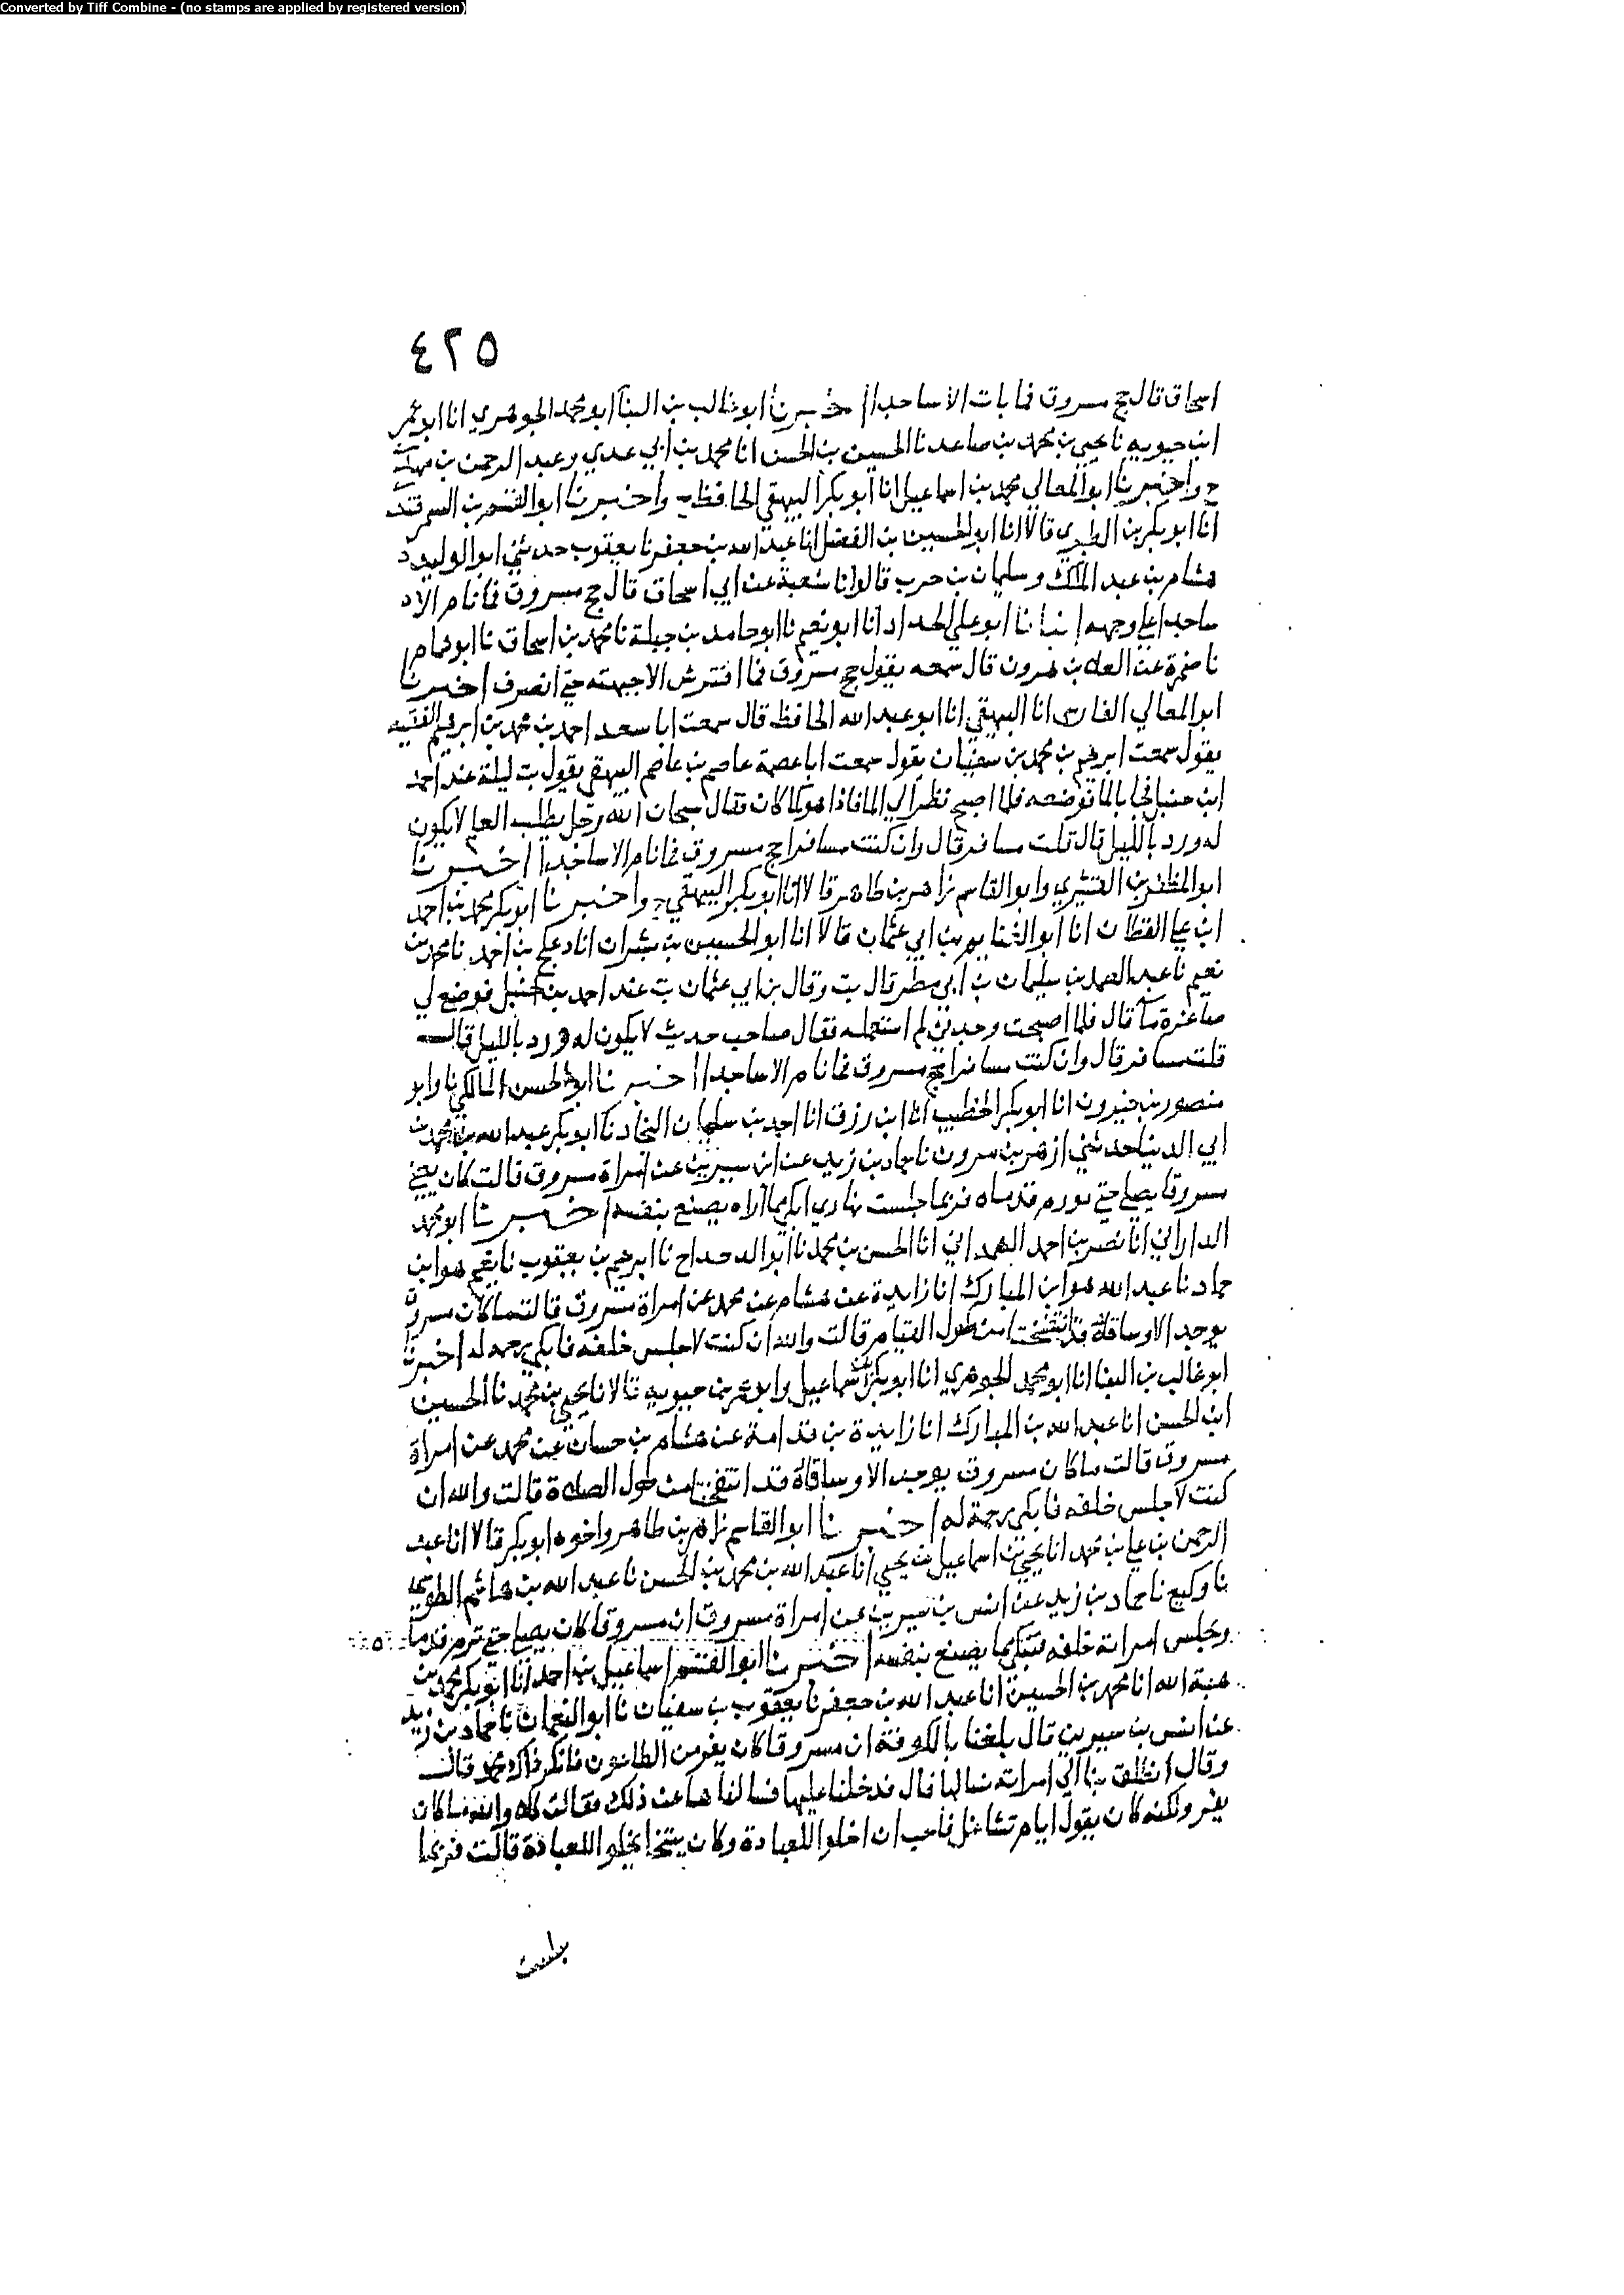 Converted by Tiff Combine - (no stamps are applied by registered version)
٤٢٥
اسحاق قال حج مسروق فما بات الا ساجدا اخبرنا ابو غالب بن البنا ابو محمد الجوهري انا ابو عمر
ابن حيويه نا يحيى بن محمد بن صاعد نا الحسين بن الحسن انا محمد بن ابي عدي وعبد الرحمن بن مهدي
ح واخبرنا ابو المعالي محمد بن اسماعيل انا ابو بكر البيهقي الحافظ ح واخبرنا ابو القسم بن السمرقند
انا ابو بكر بن الطبري قالا انا ابو الحسين بن الفضل انا عبد الله بن جعفر نا يعقوب حدثني ابو الوليد
هشام بن عبد الملك وسليمان بن حرب قالوا نا شعبة عن ابي اسحاق قال حج مسروق فما نام الا
ساجدا علي وجهه انبانا ابو علي الحداد انا ابو نعيم نا ابو حامد بن جبلة نا محمد بن اسحاق نا ابو همام
نا ضمرة عن العلا بن هرون قال سمعه يقول حج مسروق فما افترش الا جبهته حتي انصرف اخبرنا
ابو المعالي الفارسي انا البيهقي انا ابو عبد الله الحافظ قال سمعت ابا سعد احمد بن محمد بن ابرهيم الفقيه
يقول سمعت ابرهيم بن محمد بن سفيان يقول سمعت ابا عصمة عاصم بن عاصم البيهقي يقول بت ليلة عند احمد
ابن حنبل فجا بالما فوضعه فلما اصبح نظر الي الما فاذا هو كما كان فقال سبحان الله رجل يطلب العلم لا يكون
له ورد بالليل قال قلت مسافر قال وان كنت مسافرا حج مسروق فما نام الا ساجدا اخبرنا
ابو المظفر بن القشيري وابو القاسم زاهر بن طاهر قالا انا ابو بكر البيهقي ح واخبرنا ابو بكر محمد بن احمد
ابن علي القطان انا ابو الغنايم بن ابي عثمان قالا انا ابو الحسين بن بشران انا دعلج بن احمد نا محمد بن
نعيم نا عبد الصمد بن سليمان بن ابي مطر قال بت وقال بن ابي عثمان بت عند احمد بن حنبل فوضع لي
صاغرة ما قال فلما اصبحت وجدني لم استعمله فقال صاحب حديث لا يكون له ورد بالليل قال
قلت مسافر قال وان كنت مسافرا حج مسروق فما نام الا ساجدا اخبرنا ابو الحسن المالكي نا وابو
منصور بن خيرون انا ابو بكر الخطيب انا ابن رزق انا احمد بن سليمان النجاد نا ابو بكر عبد الله بن محمد بن
ابي الدنيا حدثني ازهر بن مروان نا حماد بن زيد عن انس بن سيرين عن امراة مسروق قالت كان يعني
مسروقا يصلي حتي تورم قدماه فربما جلست ابكي مما اراه يصنع بنفسه اخبرنا ابو محمد
الداراني انا نصر بن احمد الهمداني انا الحسن بن محمد نا ابو الدحداح نا ابرهيم بن يعقوب نا نعيم هو ابن
حماد نا عبد الله هو ابن المبارك انا زايدة عن هشام عن محمد عن امراة مسروق قالت ما كان مسروق
يوجد الا وساقاه قد انتفخت من طول القيام قالت والله ان كنت لاجلس خلفه فابكي رحمة له اخبرنا
ابو غالب بن البنا انا ابو محمد الجوهري انا ابو بكر بن اسماعيل وابو عمر بن حيويه قالا نا يحيى بن محمد نا الحسين
ابن الحسن انا عبد الله بن المبارك انا زايدة بن قدامة عن هشام بن حسان عن محمد عن امراة
مسروق قالت ما كان مسروق يوجد الا وساقاه قد انتفختا من طول الصلاة قالت والله ان
كنت لاجلس خلفه فابكي رحمة له اخبرنا ابو القاسم زاهر بن طاهر واخوه ابو بكر قالا انا عبد
الرحمن بن علي بن محمد انا يحيى بن اسماعيل بن يحيى انا عبد الله بن محمد بن الحسن نا عبد الله بن هاشم الطوسي
نا وكيع نا حماد بن زيد عن انس بن سيرين عن امراة مسروق ان مسروقا كان يصلي حتي ترم قدما
وتجلس امراته خلفه فتبكي مما يصنع بنفسه اخبرنا ابو القسم اسماعيل بن احمد انا ابو بكر محمد بن
هبة الله انا محمد بن الحسين انا عبد الله بن جعفر نا يعقوب بن سفيان نا ابو النعمان نا حماد بن زيد
عن انس بن سيرين قال بلغنا بالكوفة ان مسروقا كان يفر من الطاعون فانكر ذلك محمد قال
وقال انطلق بنا الي امراته نسالها قال فدخلنا عليها فسالناها عن ذلك فقالت كلا والله ما كان
يفر ولكنه كان يقول ايام تشاغل فاحب ان اخلوا للعبادة وكان يتنحا يخلوا للعبادة قالت فربما